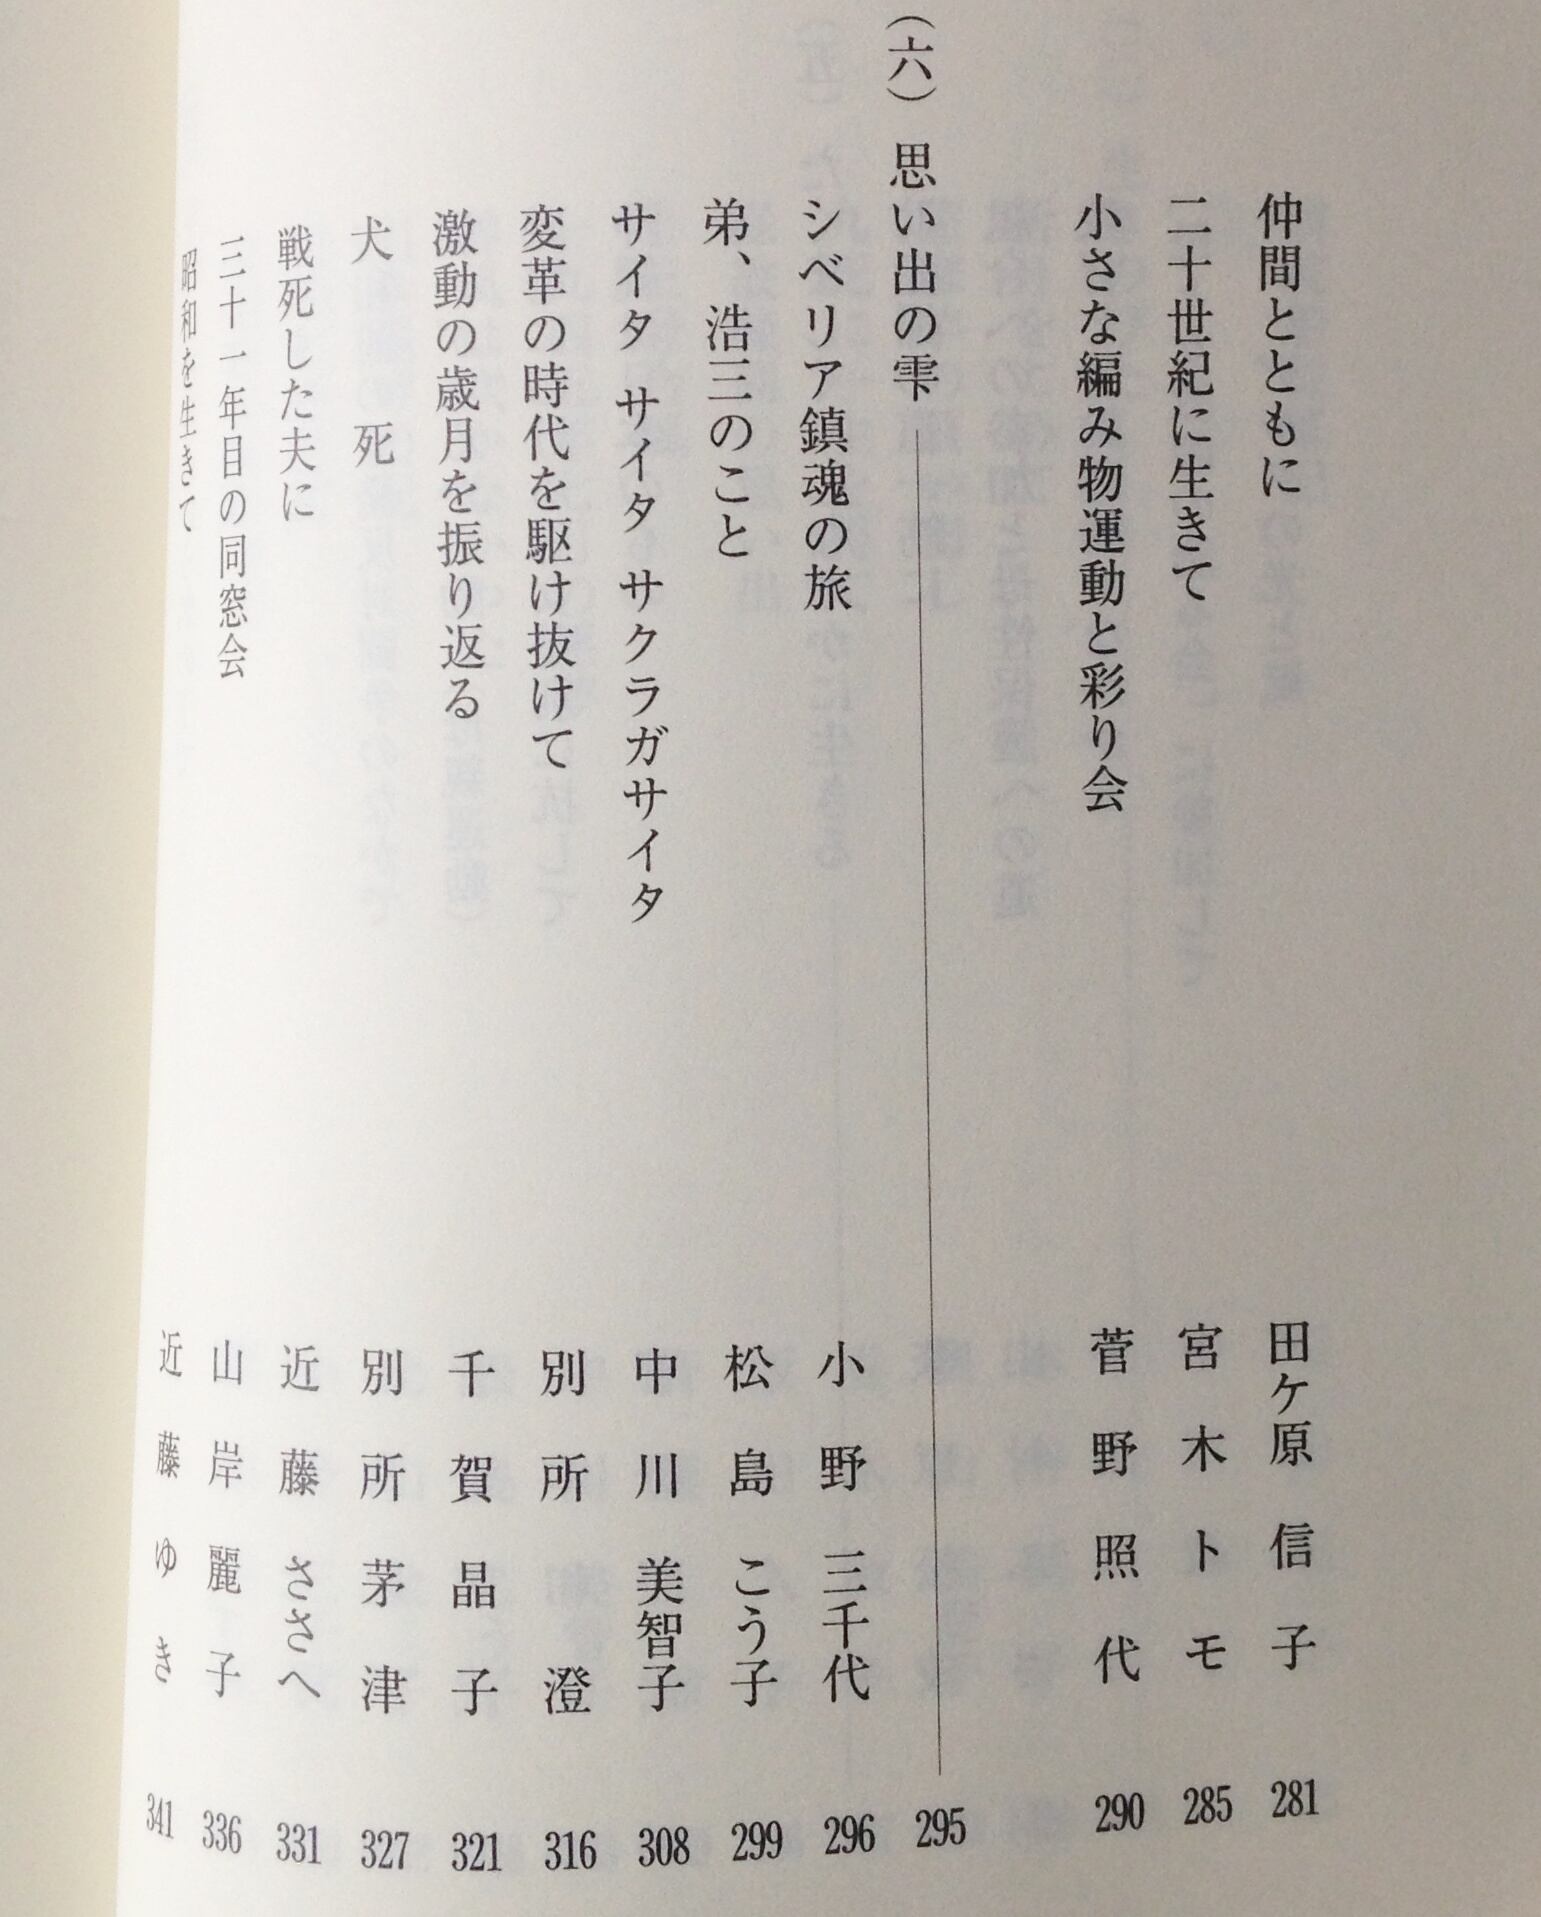 仲間とともに 田ケ原信子 281
二十世紀に生きて 宮木トモ 285
小さな編み物運動と彩り会 菅野照代 290
（六）思い出の雫 295
シベリア鎮魂の旅 小野三千代 296
弟、浩三のこと 松島こう子 299
サイタ サイタ サクラガサイタ 中川美智子 308
変革の時代を駆け抜けて 別所澄 316
激動の歳月を振り返る 千賀晶子 321
犬死 別所茅津 327
戦死した夫に 近藤ささへ 331
三十一年目の同窓会 山岸麗子 336
昭和を生きて 近藤ゆき 341